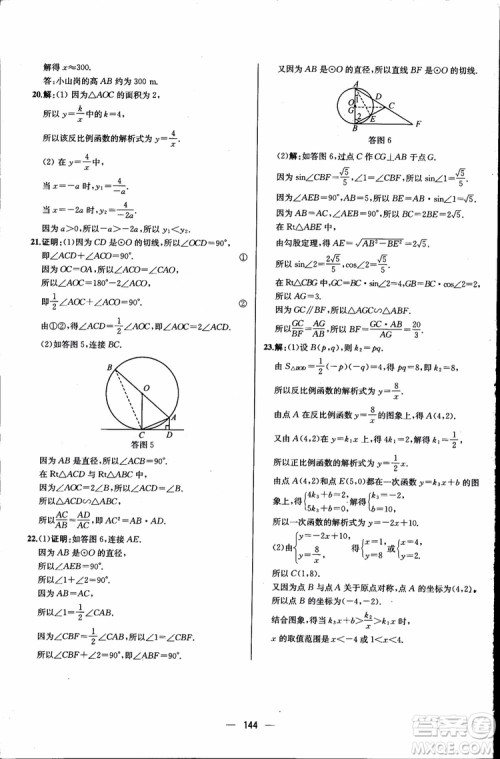 解得 x≈300.
答:小山岗的高 AB 约为 300 m.
20.解:(1) 因为△AOC 的面积为 2,
所以 k=4.
所以该反比例函数的解析式为 y=4/x.
(2) 在 y=4/x 中,
当 x=a 时,y₁=4/a;
当 x=2a 时,y₂=4/2a.
因为 a>0,所以 y₁>y₂.
21.证明:(1) 因为 CD 是⊙O 的切线,所以∠OCD=90°.
即∠ACD+∠ACO=90°. ①
因为 OC=OA,所以∠ACO=∠CAO.
所以∠AOC=180°-2∠ACO.
即 1/2∠AOC+∠ACO=90°. ②
由①②,得∠ACD=1/2∠AOC,即∠AOC=2∠ACD.
(2) 如答图 5,连接 BC.
B
O
A
C
D
答图 5
因为 AB 是直径,所以∠ACB=90°.
在 Rt△ACD 与 Rt△ABC 中,
因为∠AOC=2∠B,所以∠B=∠ACD.
所以△ACD∽△ABC.
所以 AC/AB=AD/AC,即 AC²=AB·AD.
22.(1)证明:如答图 6,连接 AE.
因为 AB 是⊙O 的直径,
所以∠AEB=90°.
所以∠1+∠2=90°.
因为 AB=AC,
所以∠1=1/2∠CAB.
因为∠CBF=1/2∠CAB,
所以∠1=∠CBF.
所以∠CBF+∠2=90°,即∠ABF=90°.
又因为 AB 是⊙O 的直径,所以直线 BF 是⊙O 的切线.
A
D
O
G
C
E
B
F
答图 6
(2)解:如答图 6,过点 C 作 CG⊥AB 于点 G.
因为 sin∠CBF=√5/5,∠1=∠CBF,所以 sin∠1=√5/5.
因为∠AEB=90°,AB=5,所以 BE=AB·sin∠1=√5.
因为 AB=AC,∠AEB=90°,所以 BC=2BE=2√5.
在 Rt△ABE 中,
由勾股定理,得 AE=√(AB²-BE²)=2√5.
所以 sin∠2=2√5/5,cos∠2=√5/5.
在 Rt△CBG 中,可求得 GC=4,GB=2,
所以 AG=3.
因为 GC∥BF,所以△AGC∽△ABF.
所以 GC/BF=AG/AB,所以 BF=GC·AB/AG=20/3.
23.解:(1) 设 B(p,q),则 k₂=pq.
由 S△BDO=1/2(-p)(-q)=4,得 pq=8,
所以 k₂=8.
所以反比例函数的解析式为 y=8/x.
由点 A 在反比例函数 y=8/x 的图象上,得 A(4,2).
又由点 A(4,2)在 y=k₁x 的图象上,得 2=4·k₁,k₁=1/2,
所以正比例函数的解析式为 y=1/2x.
由点 A(4,2)和 E(5,0)都在一次函数 y=k₃x+b 的图象上,
得{4k₃+b=2, 5k₃+b=0.解得{k₃=-2, b=10.
所以一次函数的解析式为 y=-2x+10.
(2)由{y=8/x, y=-2x+10,得{x=1, y=8或{x=4, y=2.
所以 C(1,8).
又因为点 B 与点 A 关于原点对称,点 A 的坐标为(4,2),
所以点 B 的坐标为(-4,-2).
结合图象,可得当 k₃x+b>k₂/x>k₁x 时,
x 的取值范围是 x<-4 或 1<x<4.
144
答案圈
MXQE.COM